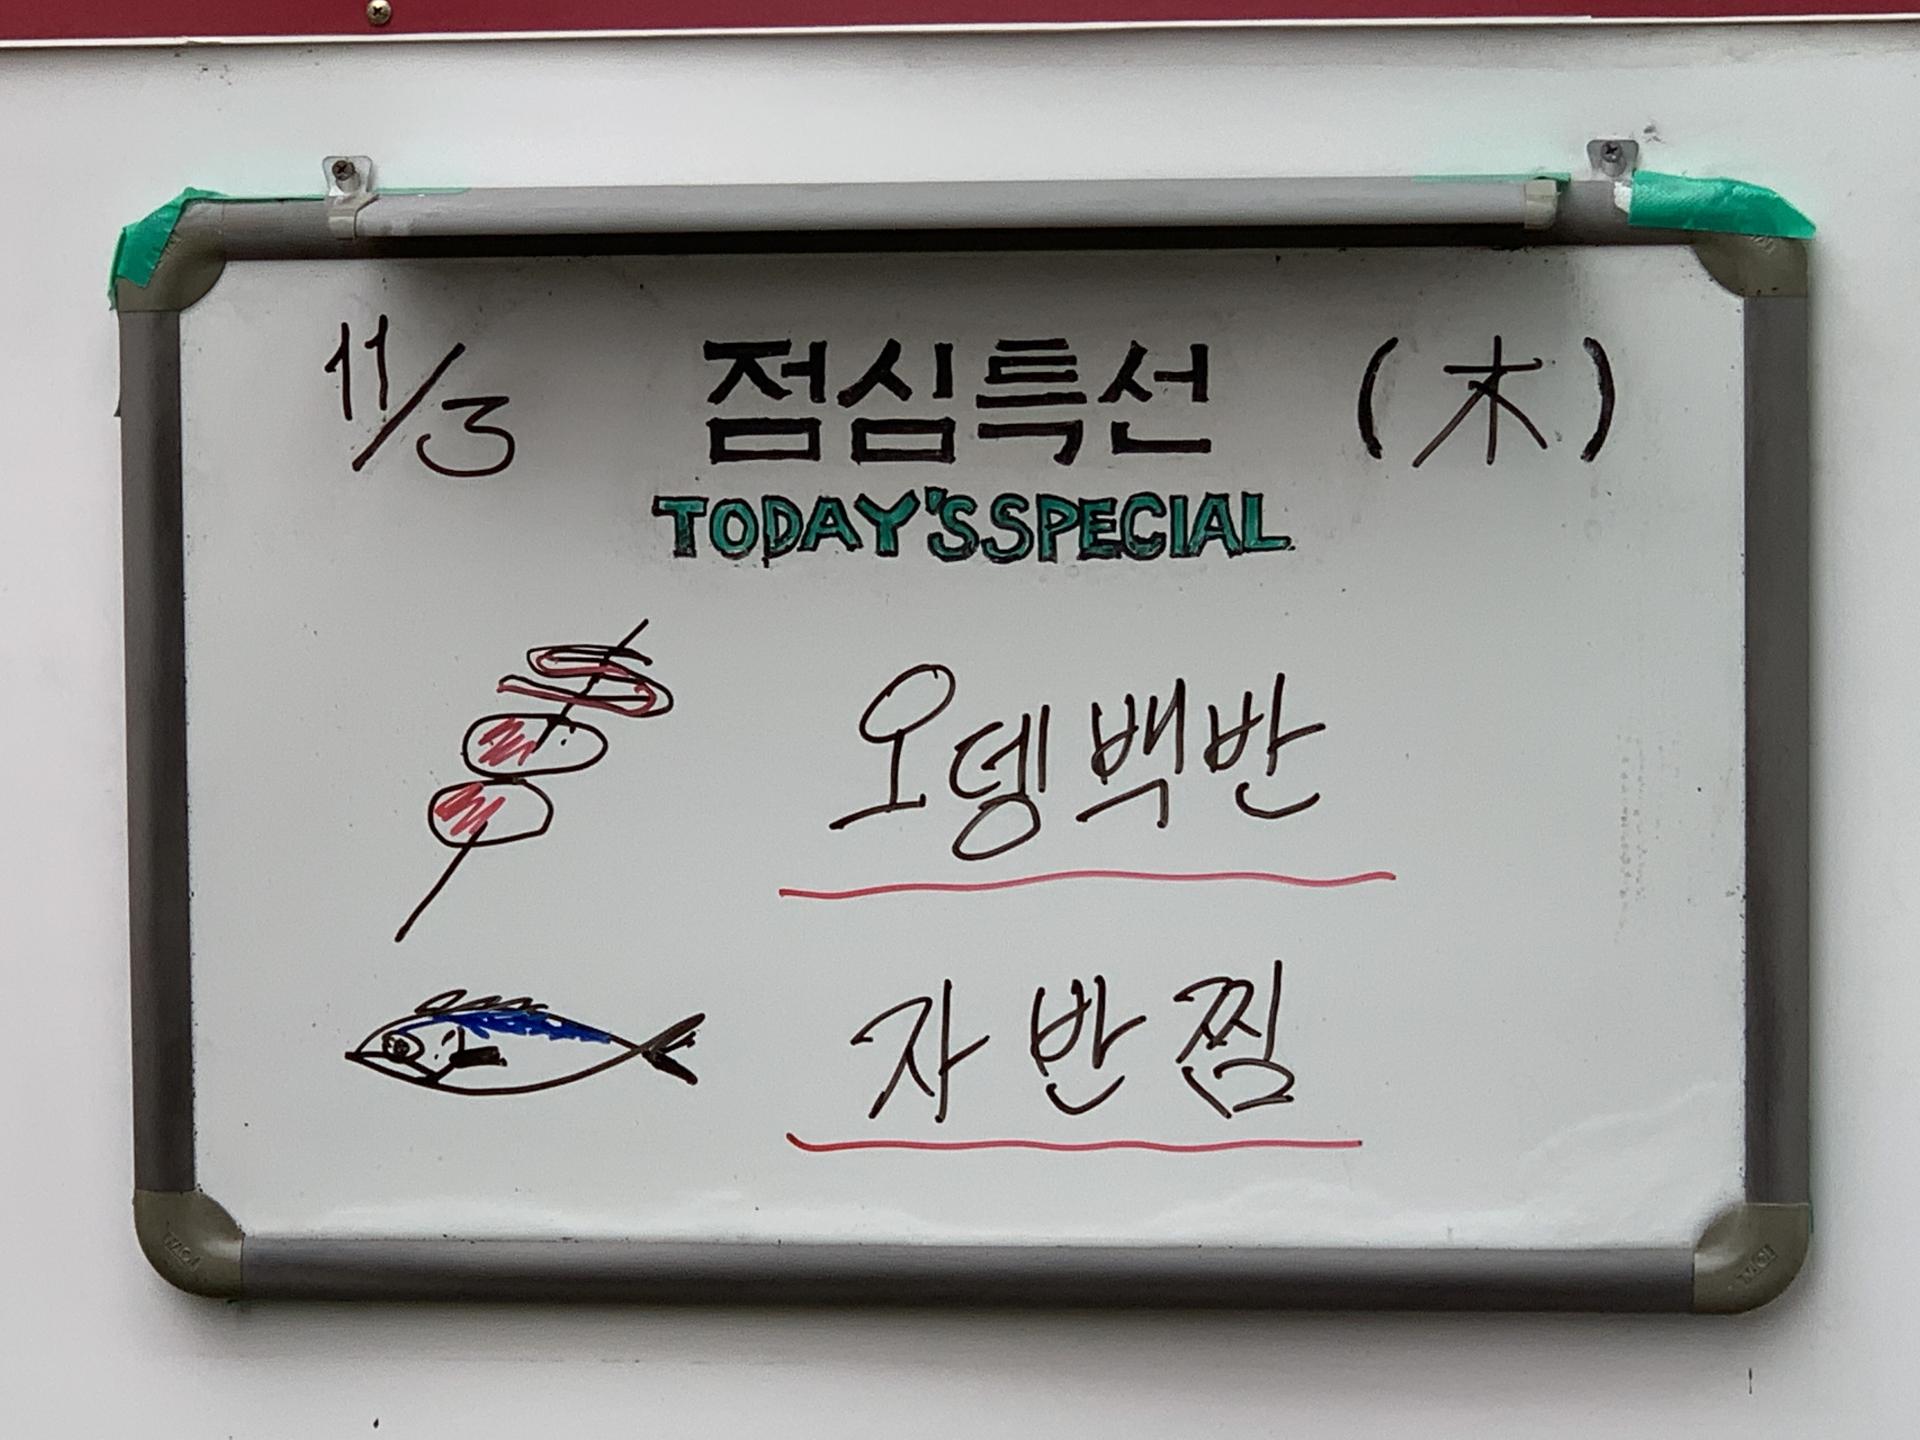 11/3 점심특선 (木)
TODAY'S SPECIAL
오뎅백반
자반찜